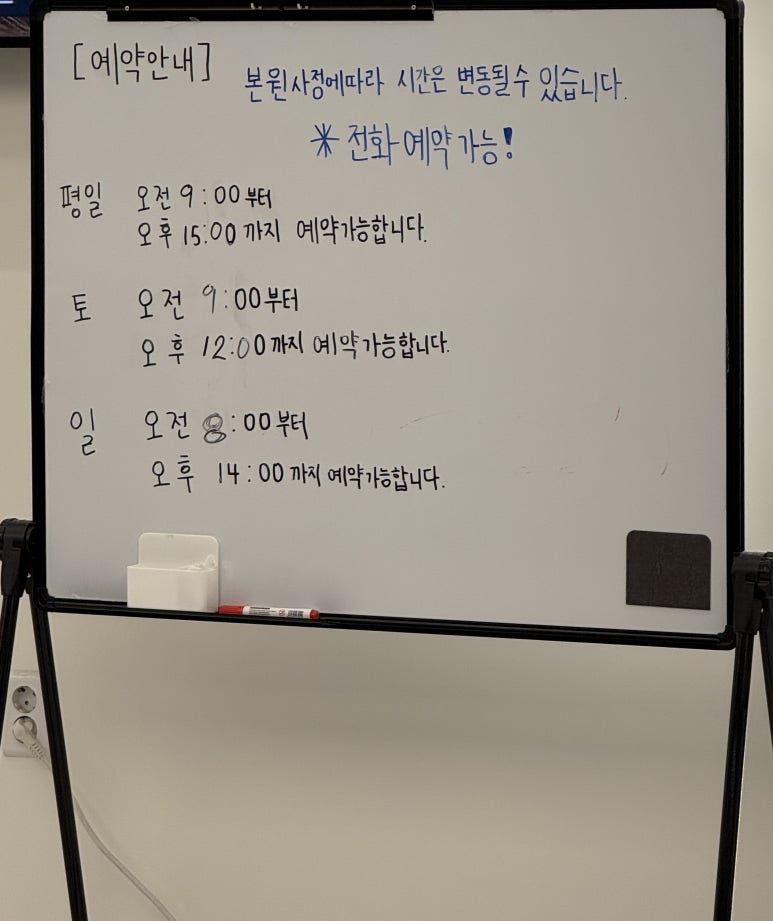 [예약안내]
본원사정에따라 시간은 변동될수 있습니다.
* 전화예약가능!
평일 오전 9:00부터
오후 15:00까지 예약가능합니다.
토 오전 9:00부터
오후 12:00까지 예약가능합니다.
일 오전 8:00부터
오후 14:00까지 예약가능합니다.